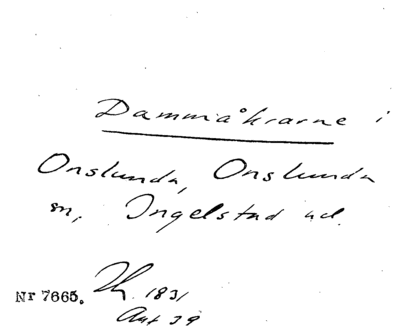 Dammåkrarne i
Onslunda, Onslunda
sn, Ingelstad hd.
Nr 7665. 1831
Akt 39